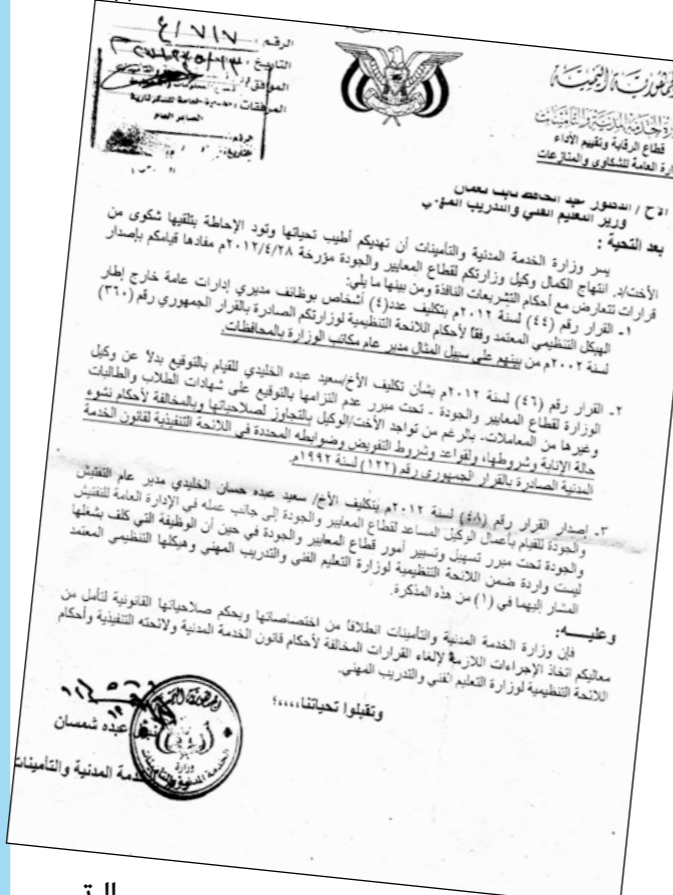 الرقم: ٤/٧١٧
التاريخ:
الموافق:
المرفقات:
الصادر العام
قطاع الرقابة وتقييم الأداء
الإدارة العامة للشكاوى والمنازعات
الأخ / الدكتور عبد الحافظ ثابت نعمان
وزير التعليم الفني والتدريب المهني
بعد التحية :
يسر وزارة الخدمة المدنية والتأمينات أن تهديكم أطيب تحياتها وتود الإحاطة بتلقيها شكوى من
الأخت/د. انتهاج الكمال وكيل وزارتكم لقطاع المعايير والجودة مؤرخة ٢٠١٢/٤/٢٨م مفادها قيامكم بإصدار
قرارات تتعارض مع أحكام التشريعات النافذة ومن بينها ما يلي:
١- القرار رقم (٤٤) لسنة ٢٠١٢م بتكليف عدد(٤) أشخاص بوظائف مديري إدارات عامة خارج إطار
الهيكل التنظيمي المعتمد وفقاً لأحكام اللائحة التنظيمية لوزارتكم الصادرة بالقرار الجمهوري رقم (٣٦٠)
لسنة ٢٠٠٢م من بينهم على سبيل المثال مدير عام مكاتب الوزارة بالمحافظات.
٢- القرار رقم (٤٦) لسنة ٢٠١٢م بشأن تكليف الأخ/سعيد عبده الخليدي للقيام بالتوقيع بدلاً عن وكيل
الوزارة لقطاع المعايير والجودة - تحت مبرر عدم التزامها بالتوقيع على شهادات الطلاب والطالبات
وغيرها من المعاملات- بالرغم من تواجد الأخت/الوكيل بالتجاوز لصلاحياتها وبالمخالفة لأحكام نشوء
حالة الإنابة وشروطها، ولقواعد وشروط التفويض وضوابطه المحددة في اللائحة التنفيذية لقانون الخدمة
المدنية الصادرة بالقرار الجمهوري رقم (١٢٢) لسنة ١٩٩٢م.
٣- إصدار القرار رقم (٤٨) لسنة ٢٠١٢م بتكليف الأخ/ سعيد عبده حسان الخليدي مدير عام التفتيش
والجودة للقيام بأعمال الوكيل المساعد لقطاع المعايير والجودة إلى جانب عمله في الإدارة العامة للتفتيش
والجودة تحت مبرر تسهيل وتسيير أمور قطاع المعايير والجودة في حين أن الوظيفة التي كلف بشغلها
ليست واردة ضمن اللائحة التنظيمية لوزارة التعليم الفني والتدريب المهني وهيكلها التنظيمي المعتمد
المشار إليهما في (١) من هذه المذكرة.
وعليـــه:
فإن وزارة الخدمة المدنية والتأمينات انطلاقاً من اختصاصاتها وبحكم صلاحياتها القانونية لتأمل من
معاليكم اتخاذ الإجراءات اللازمة لإلغاء القرارات المخالفة لأحكام قانون الخدمة المدنية ولائحته التنفيذية وأحكام
اللائحة التنظيمية لوزارة التعليم الفني والتدريب المهني.
وتقبلوا تحياتنا،،،،؛
عبده شمسان
الخدمة المدنية والتأمينات